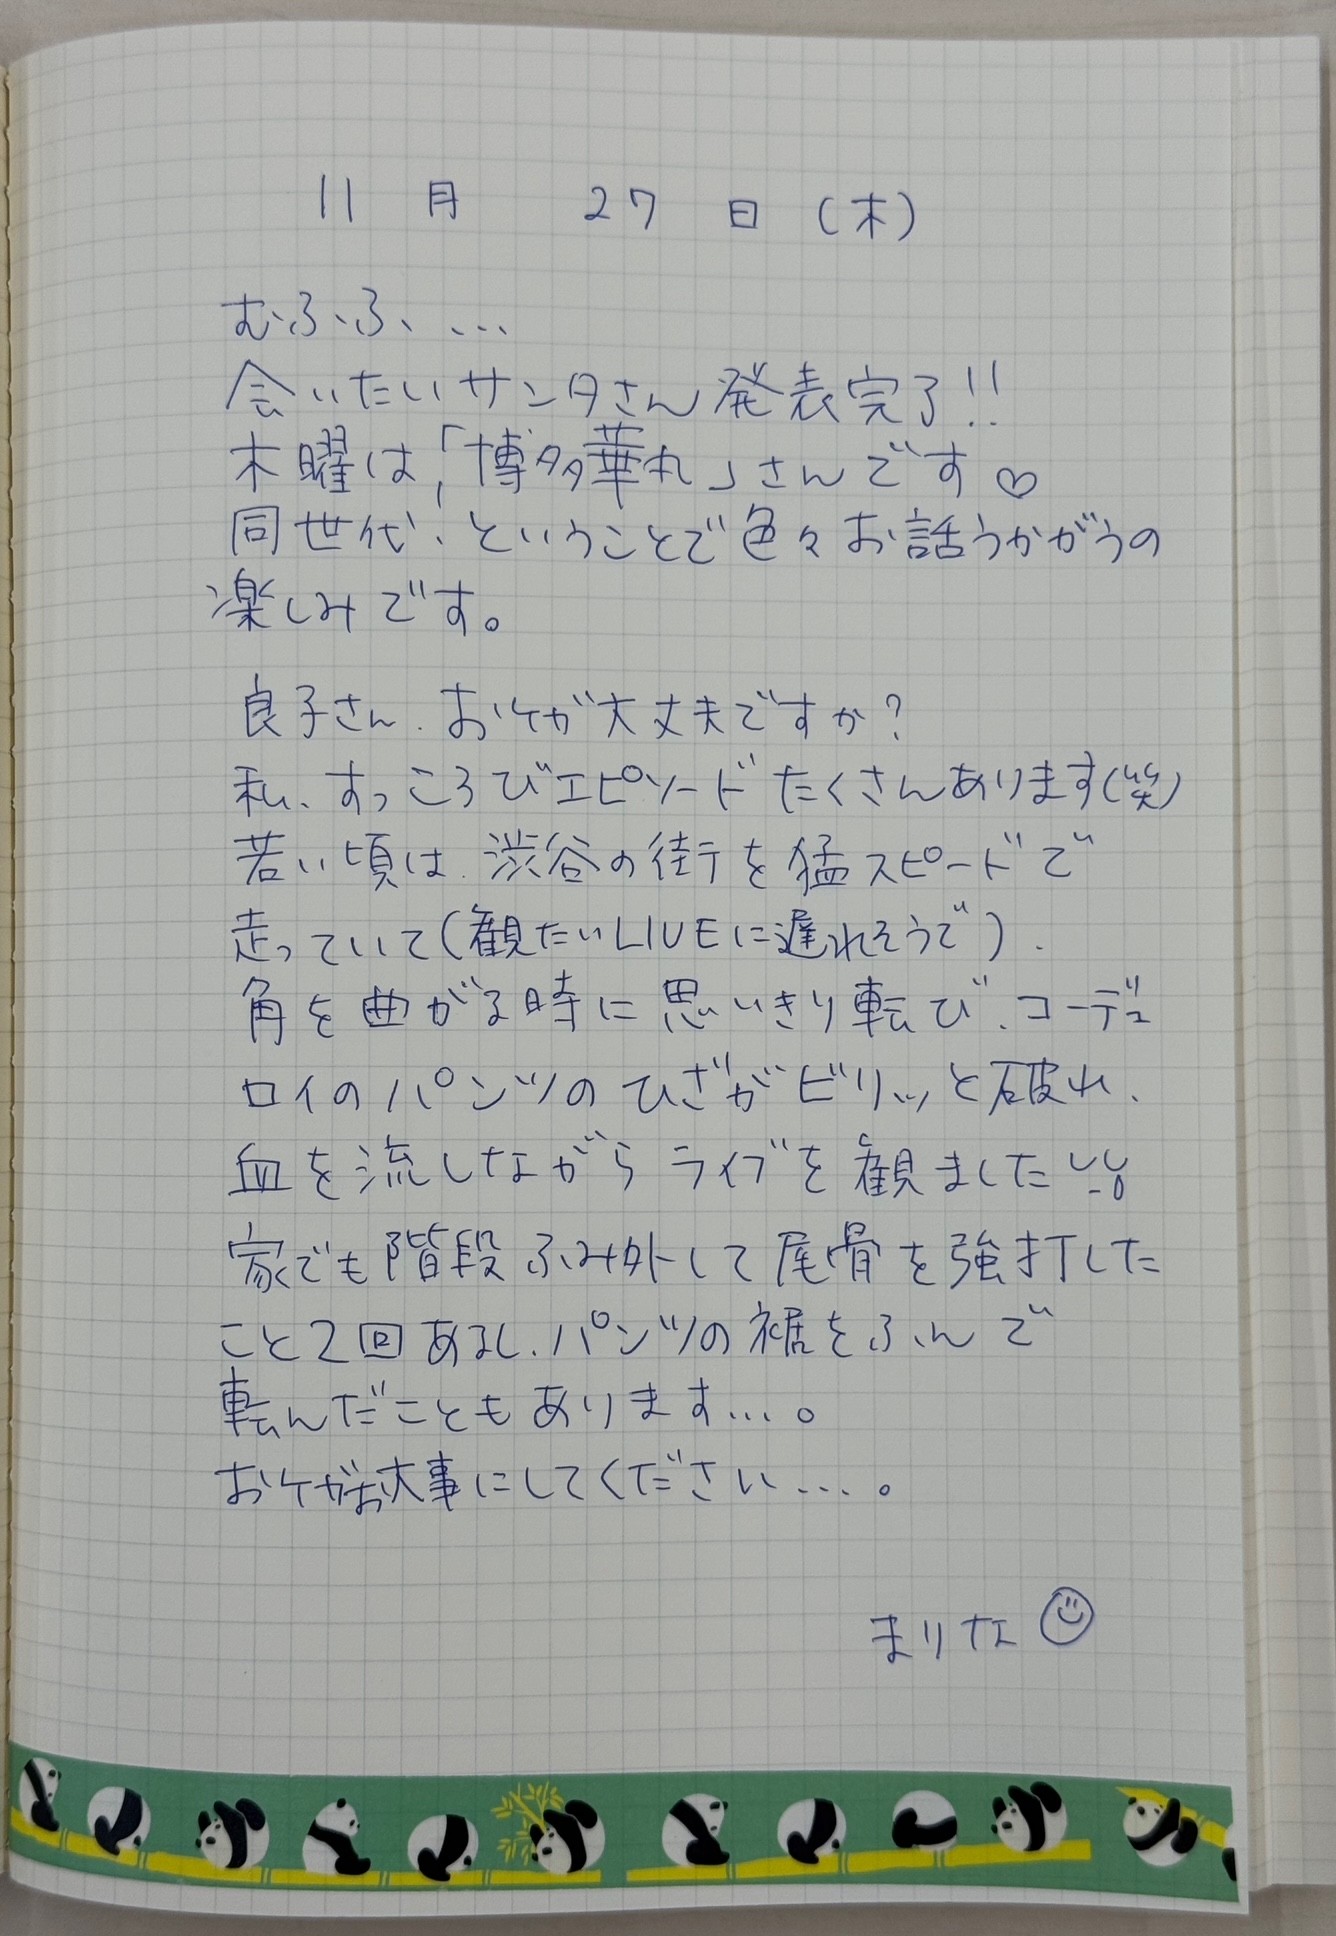 11月 27日(木)
むふふ、…
会いたいサンタさん発表完了!!
木曜は、「博多華丸」さんです♡
同世代、ということで色々お話うかがうの
楽しみです。
良子さん、おケガ大丈夫ですか?
私、すっころびエピソードたくさんあります(笑)
若い頃は、渋谷の街を猛スピードで
走っていて(観たいLIVEに遅れそうで)、
角を曲がる時に思いきり転び、コーデュ
ロイのパンツのひざがビリッと破れ、
血を流しながらライブを観ました
家でも階段ふみ外して尾骨を強打した
こと2回あるし、パンツの裾をふんで
転んだこともあります…。
おケガお大事にしてください…。
まりな